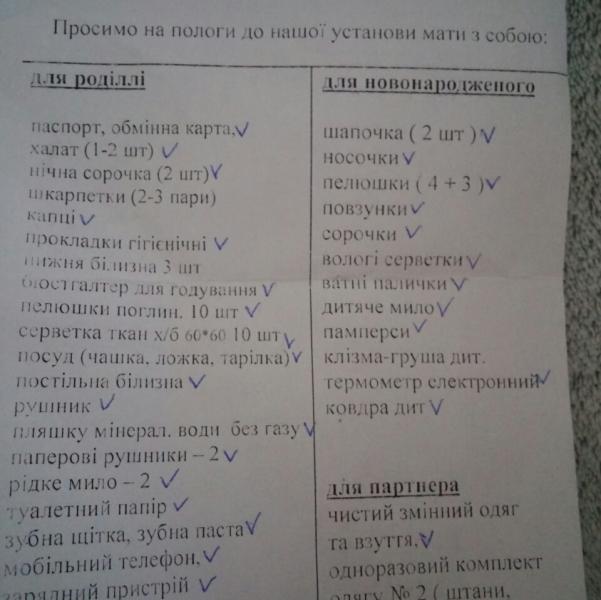 Просимо на пологи до нашої установи мати з собою:
для роділлі
паспорт, обмінна карта,
халат (1-2 шт)
нічна сорочка (2 шт)
шкарпетки (2-3 пари)
капці
прокладки гігієнічні
нижня білизна 3 шт
бюстгалтер для годування
пелюшки поглин. 10 шт
серветка ткан х/б 60*60 10 шт
посуд (чашка, ложка, тарілка)
постільна білизна
рушник
пляшку мінерал. води без газу
паперові рушники – 2
рідке мило – 2
туалетний папір
зубна щітка, зубна паста
мобільний телефон,
зарядний пристрій
для новонародженого
шапочка ( 2 шт )
носочки
пелюшки ( 4 + 3 )
повзунки
сорочки
вологі серветки
ватні палички
дитяче мило
памперси
клізма-груша дит.
термометр електронний
ковдра дит
для партнера
чистий змінний одяг
та взуття,
одноразовий комплект
одягу № 2 ( штани,